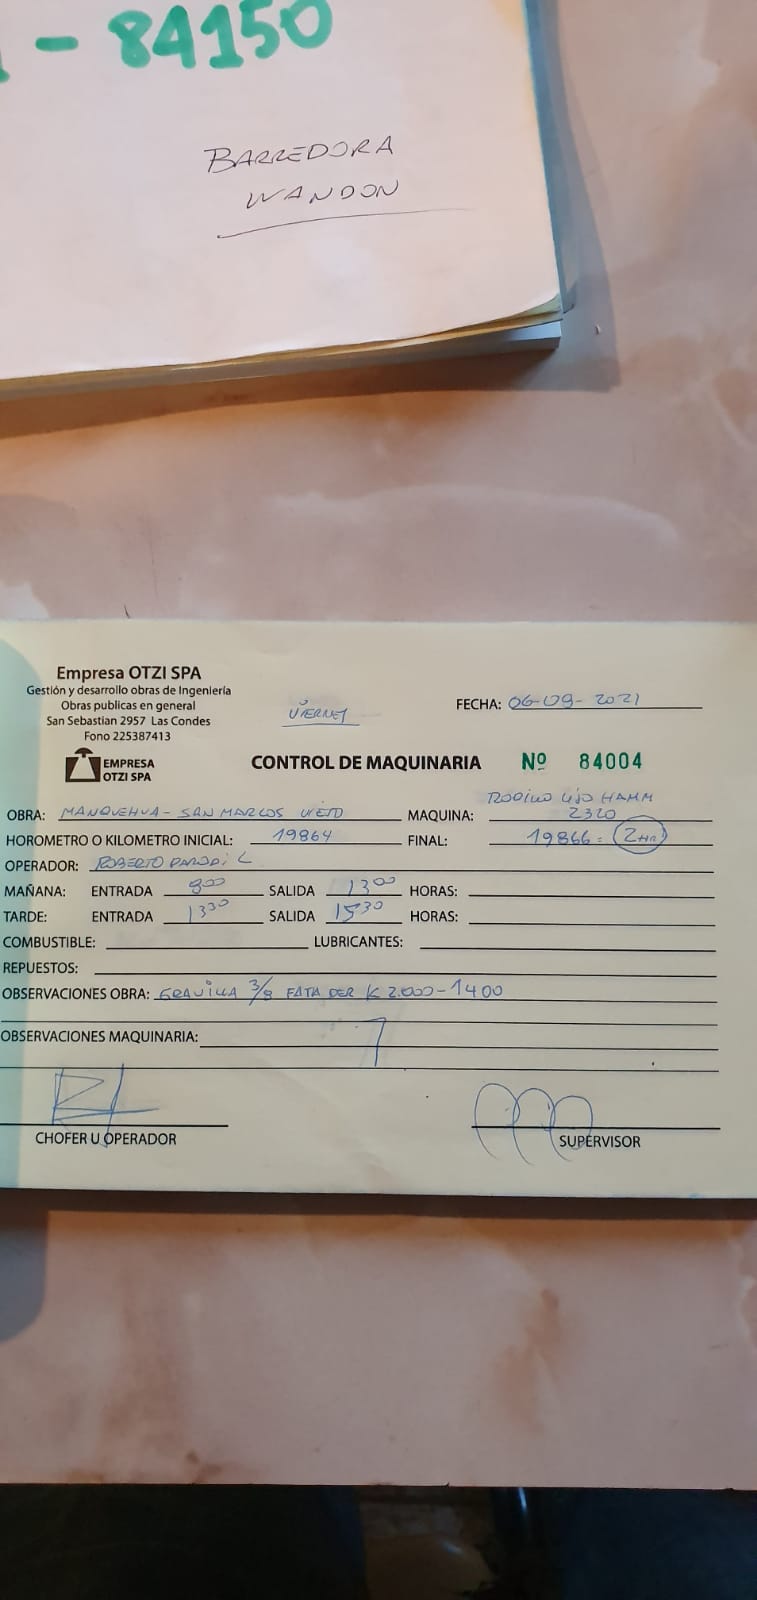 - 84150
BARREDORA
WANDON
Empresa OTZI SPA
Gestión y desarrollo obras de Ingeniería
Obras publicas en general
San Sebastian 2957 Las Condes
Fono 225387413
EMPRESA
OTZI SPA
VIERNES
FECHA: 06-09-2021
CONTROL DE MAQUINARIA Nº 84004
OBRA: MANQUEHUA - SAN MARCOS VIEJO
MAQUINA: RODILLO LISO HAMM
2320
HOROMETRO O KILOMETRO INICIAL: 19864 FINAL: 19866 = 2HR
OPERADOR: ROBERTO PARODI L
MAÑANA: ENTRADA 800 SALIDA 1300 HORAS:
TARDE: ENTRADA 1330 SALIDA 1530 HORAS:
COMBUSTIBLE: LUBRICANTES:
REPUESTOS:
OBSERVACIONES OBRA: GRAVILLA 3/8 DER K 2.000-1400
OBSERVACIONES MAQUINARIA:
CHOFER U OPERADOR SUPERVISOR